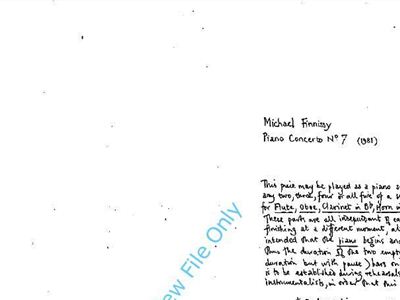 Michael Finnissy
Piano Concerto Nº 7 (1981)
This piece may be played as a piano s
any two, three, four or all five of a
for Flute, Oboe, Clarinet in Bb, Horn in
These parts are all independent of e
finishing at a different moment, al
intended that the piano begins an
Thus the duration of the two empt
duration but with pause) bars on
is to be established during rehearsal
instrumentalists, in order that this
ew File Only